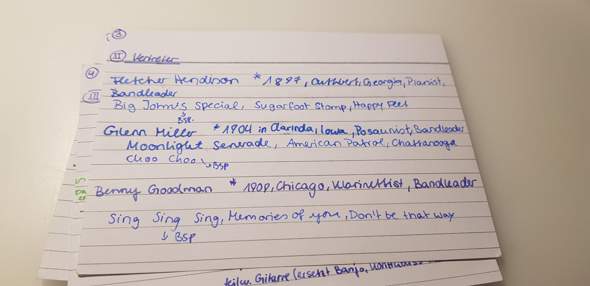 3
II Vertreter
4
Fletcher Henderson * 1897, Cuthbert, Georgia, Pianist,
III Bandleader
Big John's Special, Sugarfoot Stomp, Happy Feet
↳ BSP.
Glenn Miller * 1904 in Clarinda, Iowa, Posaunist, Bandleader
Moonlight Serenade, American Patrol, Chattanooga
Choo Choo ↳ BSP
Benny Goodman * 1909, Chicago, Klarinettist, Bandleader
Sing Sing Sing, Memories of you, Don't be that way
↓ BSP
teilw. Gitarre (ersetzt Banjo,